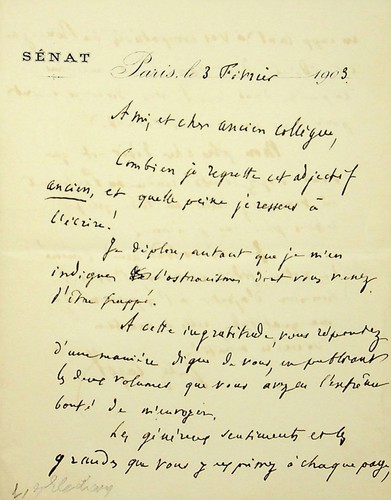 SÉNAT
Paris, le 3 Février 1903.
Ami, et cher ancien collègue,
Combien je regrette cet adjectif
ancien, et quelle peine je ressens à
l'écrire!
Je déplore, autant que je m'en
indigne l'ostracisme dont vous venez
d'être frappé.
A cette ingratitude, vous répondez
d'une manière digne de vous, en publiant
les deux volumes que vous avez eu l'extrême
bonté de m'envoyer.
Les généreux sentiments et les
grandes que vous y exprimez à chaque page,